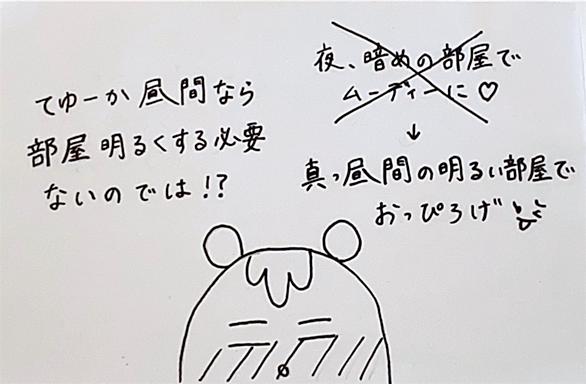 てゆーか昼間なら
部屋明るくする必要
ないのでは!?
夜、暗めの部屋で
ムーディーに♡
↓
真っ昼間の明るい部屋で
おっぴろげ